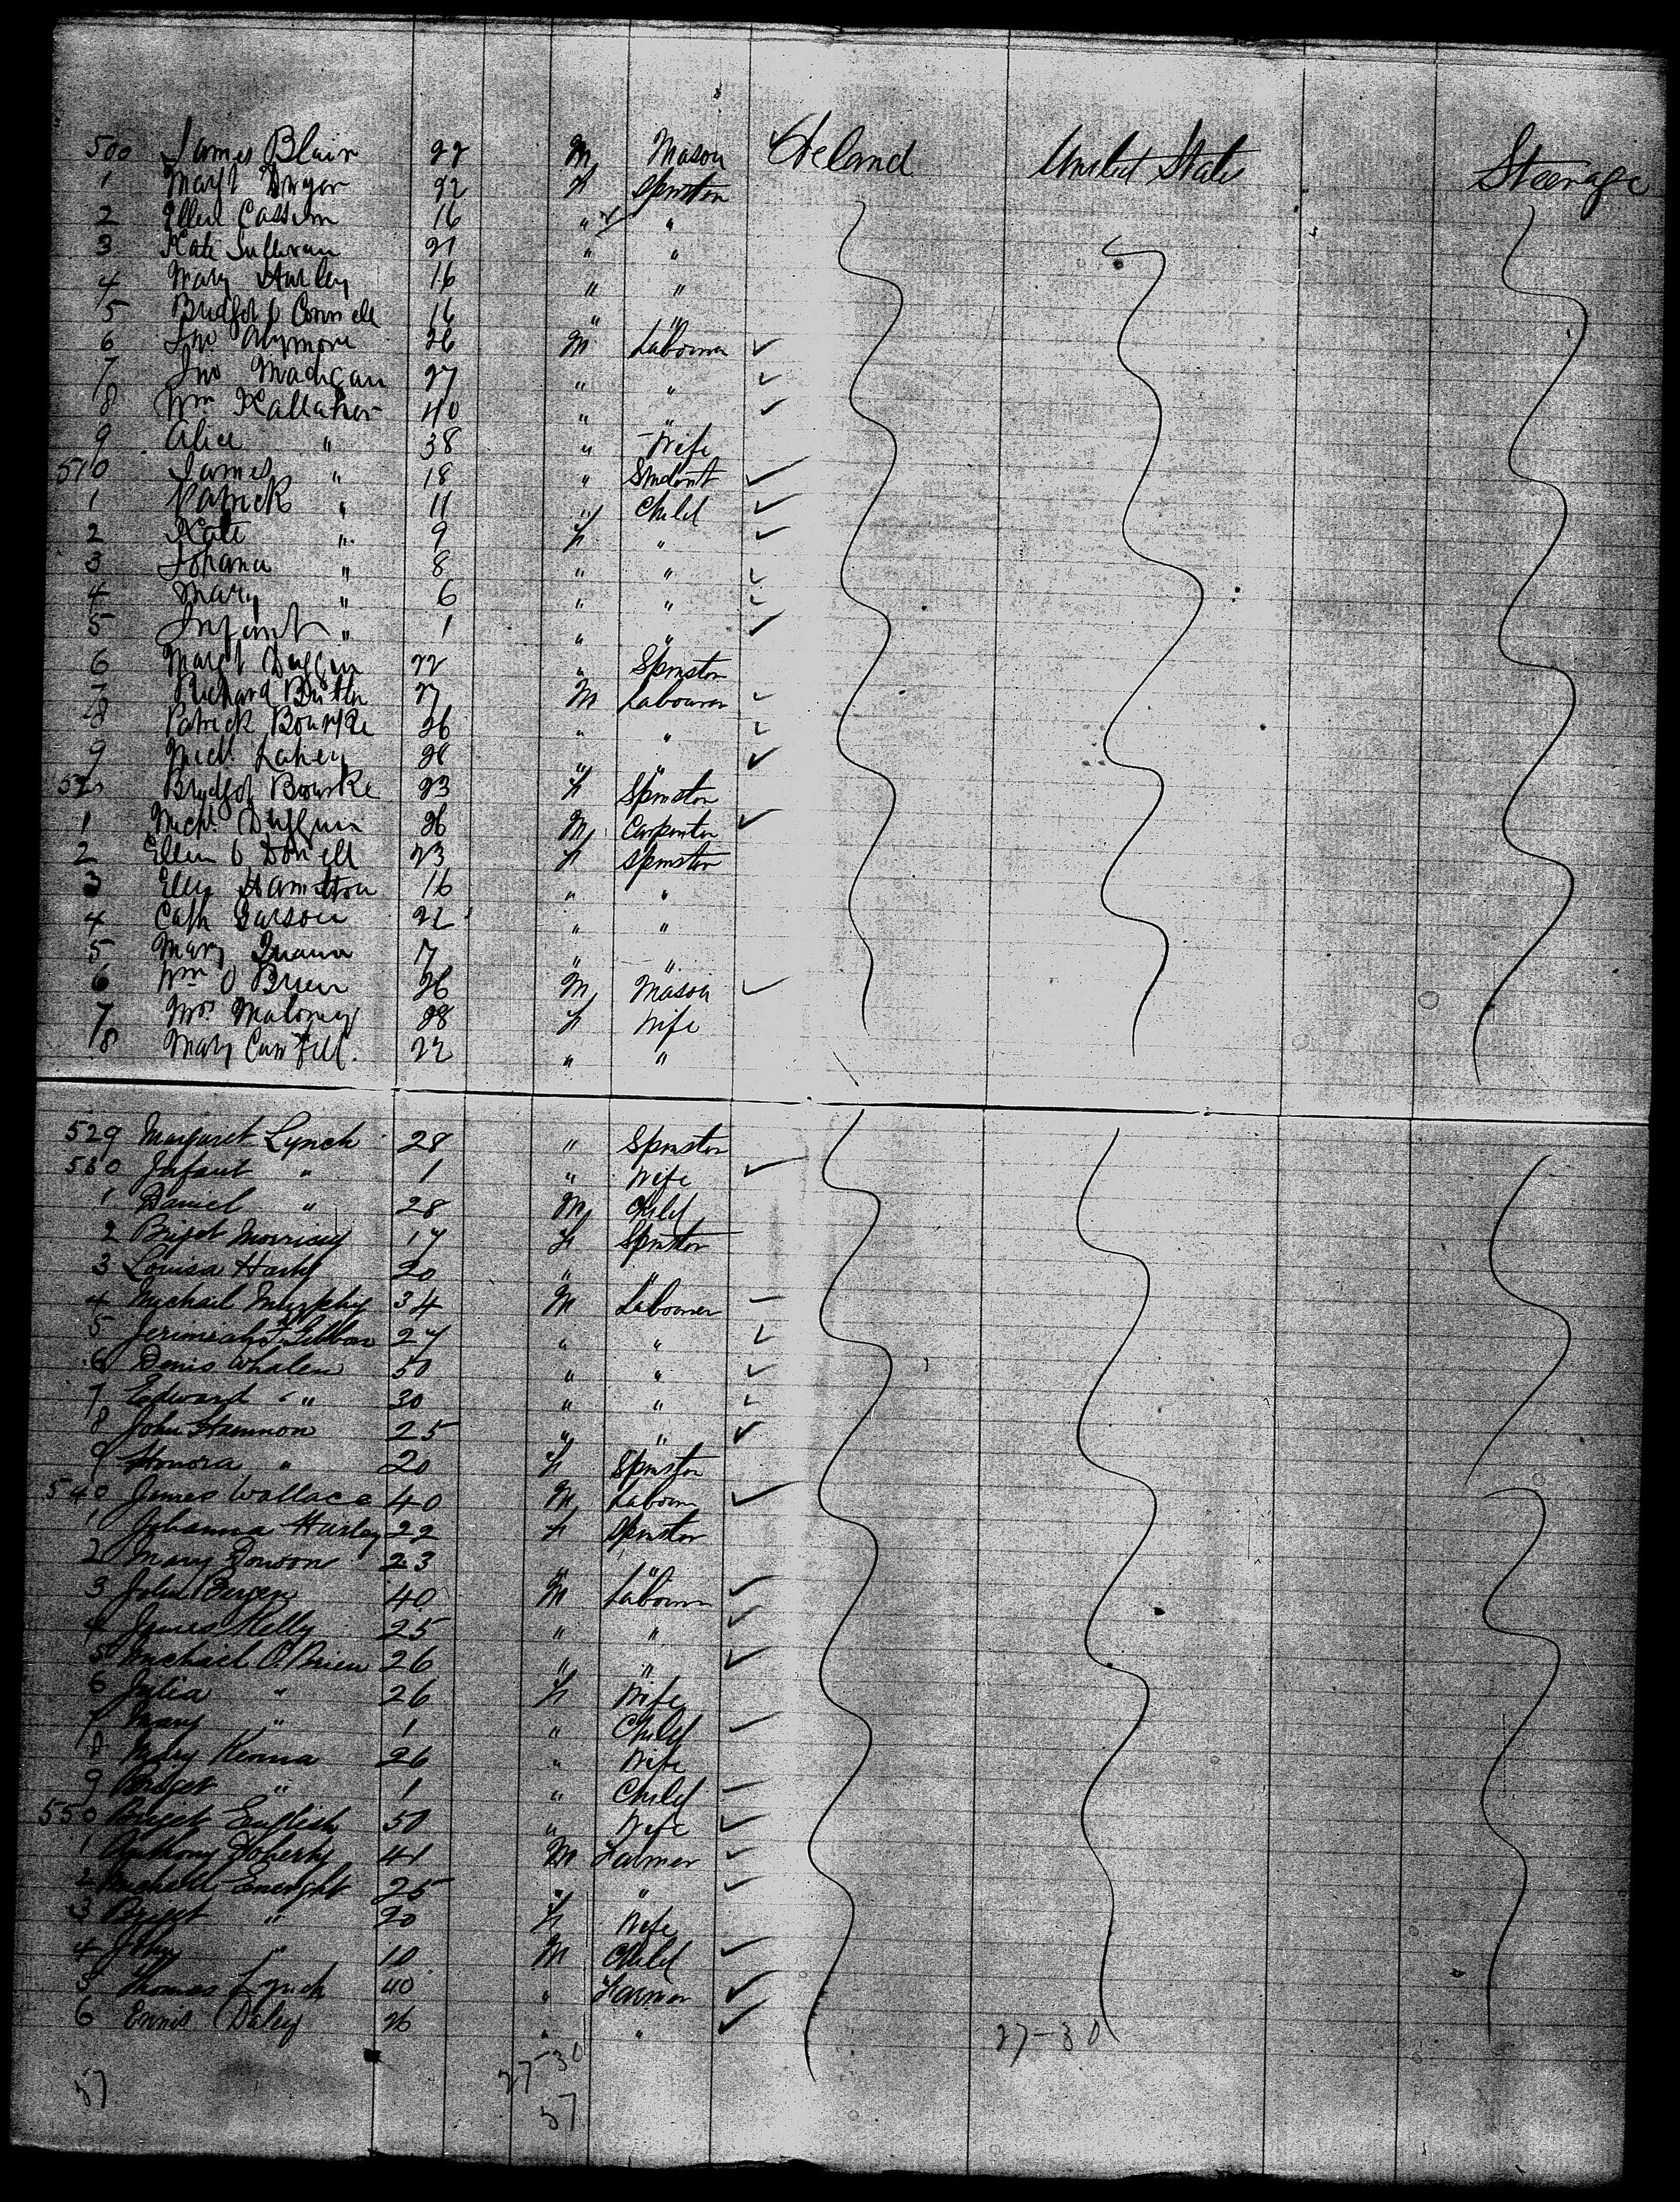 500 James Blair 22 M Mason Ireland United State Steerage
1 Margt Dwyer 22 F Spinster
2 Ellen 16 " "
3 Kate Sullivan 21 " "
4 Mary Hurley 16 " "
5 Bridget O Connell 16 " "
6 Jno 26 M Labourer
7 Jno Madigan 27 " "
8 Wm Kallaher 40 " "
9 Alice " 38 " Wife
510 James " 18 " Student
1 Patrick " 11 " Child
2 Kate " 9 F "
3 Johana " 8 " "
4 Mary " 6 " "
5 Infant " 1 " "
6 Margt Duggin 22 " Spinster
7 Richard 27 M Labourer
8 Patrick Bourke 26 " "
9 Michl Lahey 28 " "
520 Bridget Bourke 23 F Spinster
1 Michl Duggin 26 M Carpenter
2 Ellen O Donell 23 F Spinster
3 Ellen Hamilton 16 " "
4 Cath 22 " "
5 Mary 17 " "
6 Wm O Brien 26 M Mason
7 Mrs Maloney 28 F Wife
8 Mary 22 " "
529 Margaret Lynch 28 " Spinster
530 Infant " 1 " Wife
1 Daniel " 28 M Child
2 Briget Morrisey 17 F Spinster
3 Louisa 20 " "
4 Michail Murphy 34 M Labourer
5 Jerimiah 27 " "
6 Denis Whalen 50 " "
7 Edward " 30 " "
8 John Hammon 25 " "
9 Honora " 20 F Spinster
540 James Wallace 40 M Labourer
1 Johanna Hurley 22 F Spinster
2 Mary 23 " "
3 John Bergen 40 M Labourer
4 James Kelly 25 " "
5 Michael O.Brien 26 " "
6 Julia " 26 F Wife
7 Mary " 1 " Child
8 Mary Kenna 26 " Wife
9 Bridget " 1 " Child
550 Briget English 50 " Wife
1 Anthony Doherty 41 M Farmer
2 Michell Enwright 25 " "
3 Briget " 20 F Wife
4 John " 10 M Child
5 Thomas Lynch 40 " Farmer
6 Ennis Daley 26 " "
27-30
27-30
57
57